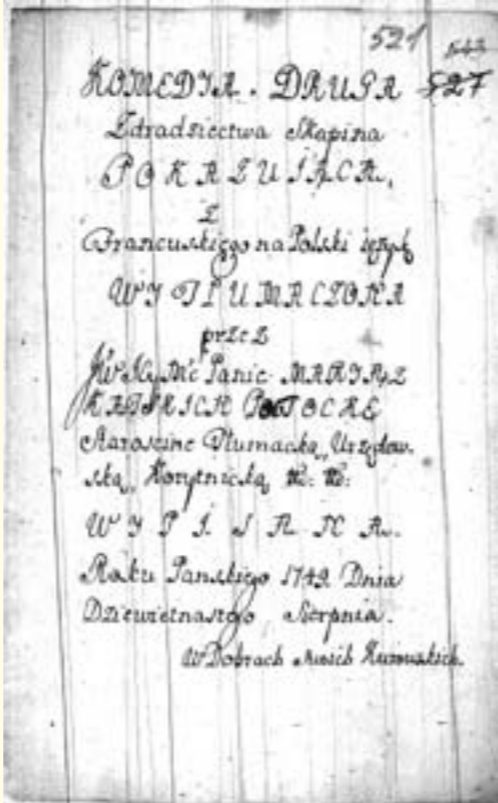 521
527
KOMEDYA. DRUGA
Zdradziectwa Skapina
POKAZUIĄCA,
Z
Francuskiego na Polski ięzyk
WYTŁUMACZONA
przez
Panię MARYĄ Z
KĄTSKICH POTOCKĘ
Starościnę Tłumacką, Urzędow-
ską, Korytnicką &c: &c:
WYPISANA.
Roku Panskiego 1749 Dnia
Dziewietnastego Sierpnia.
W Dobrach Moich